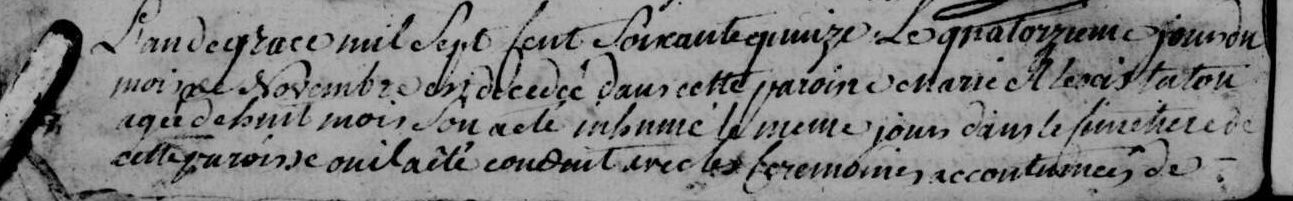 L'an de grace mil Sept Cent Soixante quinze Le quatorzieme jour du
mois de Novembre est decedeé dans cette paroise Marie Alexis taton
ageé de huit mois Son a eté inhumé le meme jour dans le Cimetiere de
cette paroisse ou il a eté conduit avec les Ceremonies accoutumeés de